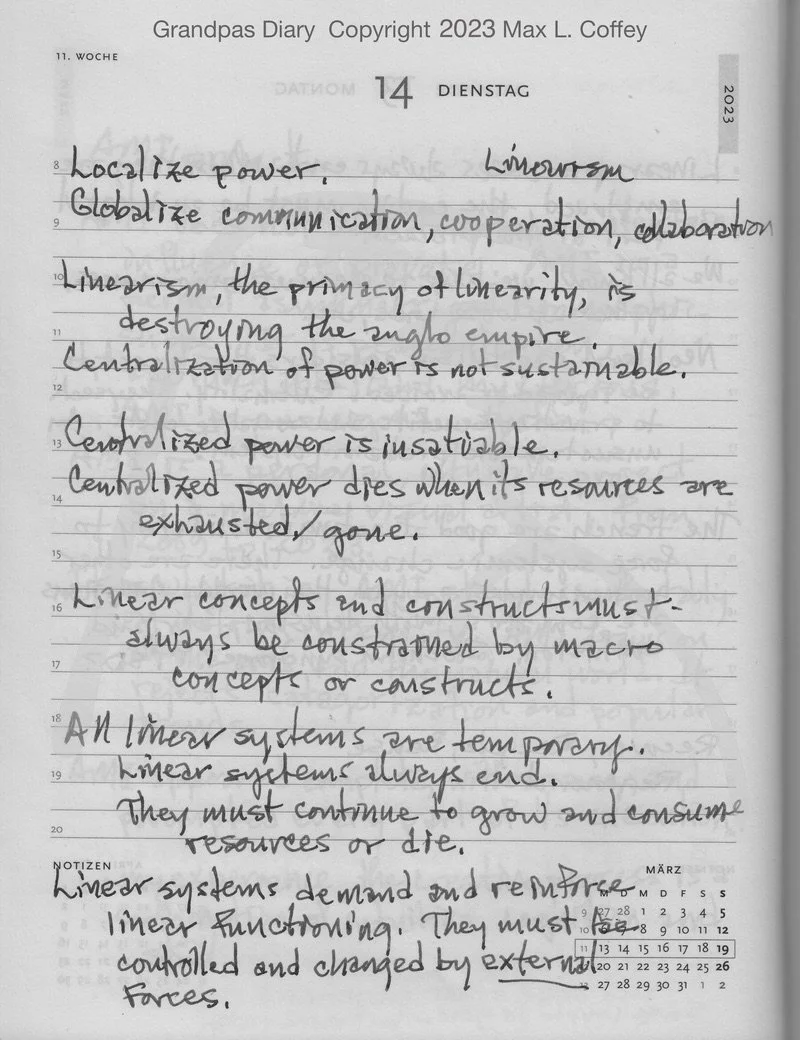 Grandpas Diary Copyright 2023 Max L. Coffey
11. WOCHE
14 DIENSTAG
2023
8 Localize power. Linearism
Globalize communication, cooperation, collaboration
9
10 Linearism, the primacy of linearity, is
destroying the anglo empire.
11
Centralization of power is not sustainable.
12
13 Centralized power is insatiable.
Centralized power dies when its resources are
14
exhausted/gone.
15
16 Linear concepts and constructs must
always be constrained by macro
17
concepts or constructs.
18 All linear systems are temporary.
19 Linear systems always end.
They must continue to grow and consume
20
resources or die.
NOTIZEN
MÄRZ
Linear systems demand and reinforse
M D F S S
linear functioning. They must be
9 27 28 1 2 3 4 5
10 8 9 10 11 12
controlled and changed by external
11 13 14 15 16 17 18 19
20 21 22 23 24 25 26
forces.
27 28 29 30 31 1 2